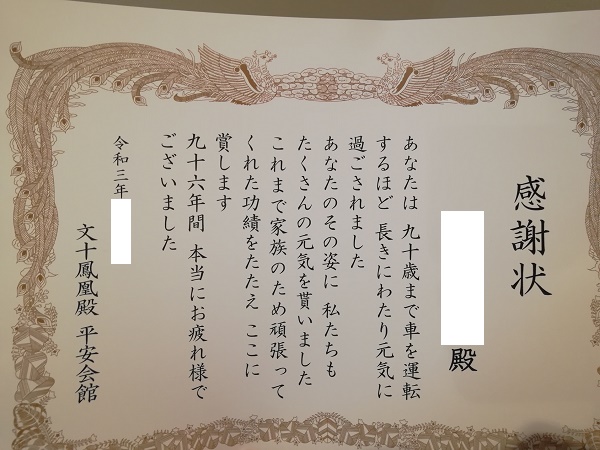 感謝状
殿
あなたは 九十歳まで車を運転
するほど 長きにわたり元気に
過ごされました
あなたのその姿に 私たちも
たくさんの元気を貰いました
これまで家族のため頑張って
くれた功績をたたえ ここに
賞します
九十六年間 本当にお疲れ様で
ございました
令和三年
文十鳳凰殿 平安会館